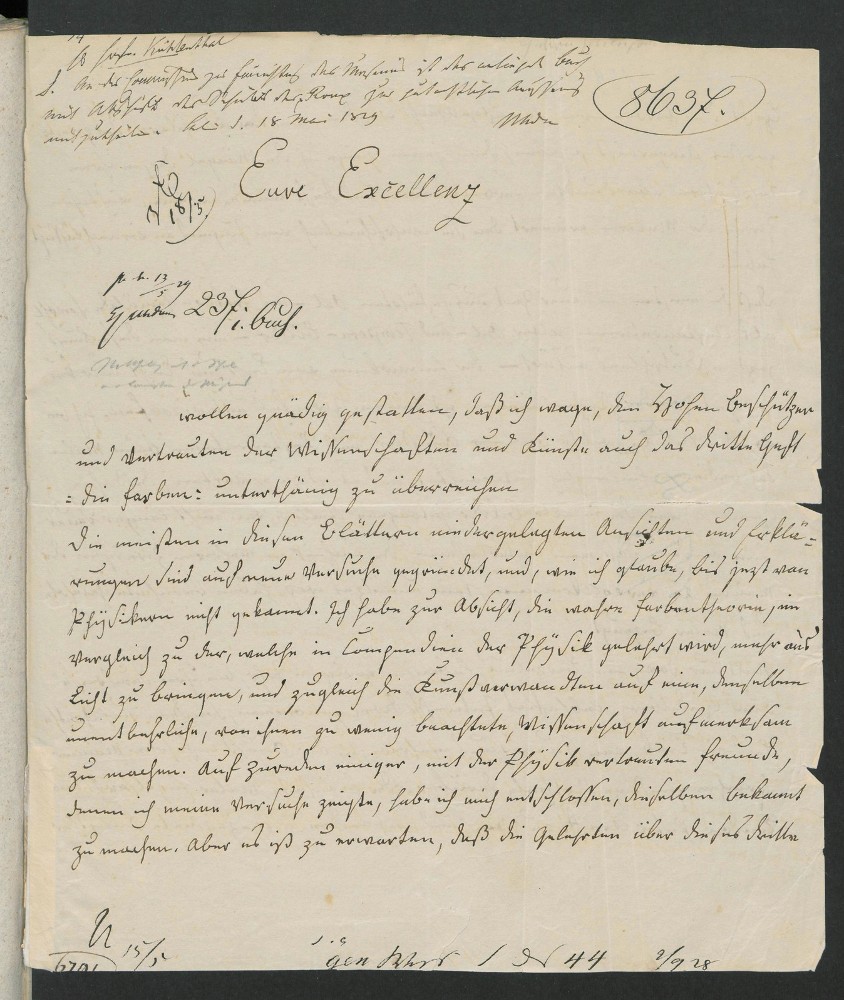 H. Kühlenthal
An die Commission zur Einrichtung des Museums ist das anliegende Buch
mit Abschrift des Schreibens des Roux zur gutachtlichen Aeußerung
mitzutheilen. B. d. 18 Mai 1829
8637.
18/5.
Eure Excellenz
pr. d. 13/5 29
237.
1. Buch.
wollen gnädig gestatten, daß ich wage, dem Hohen Beschützer
und Vertrauten der Wissenschaften und Künste auch das dritte Heft
: die Farben : unterthänig zu überreichen
Die meisten in diesen Blättern niedergelegten Ansichten und Erklä-
rungen sind auf neue Versuche gegründet, und, wie ich glaube, bis jezt von
Physikern nicht gekannt. Ich habe zur Absicht, die wahre Farbentheorie, im
Vergleich zu der, welche in Compendien der Physik gelehrt wird, mehr ans
Licht zu bringen, und zugleich die Kunstverwandten auf eine, denselben
unentbehrliche, von ihnen zu wenig beachtete, Wissenschaft aufmerksam
zu machen. Auf Zureden einiger, mit der Physik vertrauten Freunde,
denen ich meine Versuche zeigte, habe ich mich entschlossen, dieselben bekannt
zu machen. Aber es ist zu erwarten, daß die Gelehrten über dieses dritte
15/5
44 2/9 28